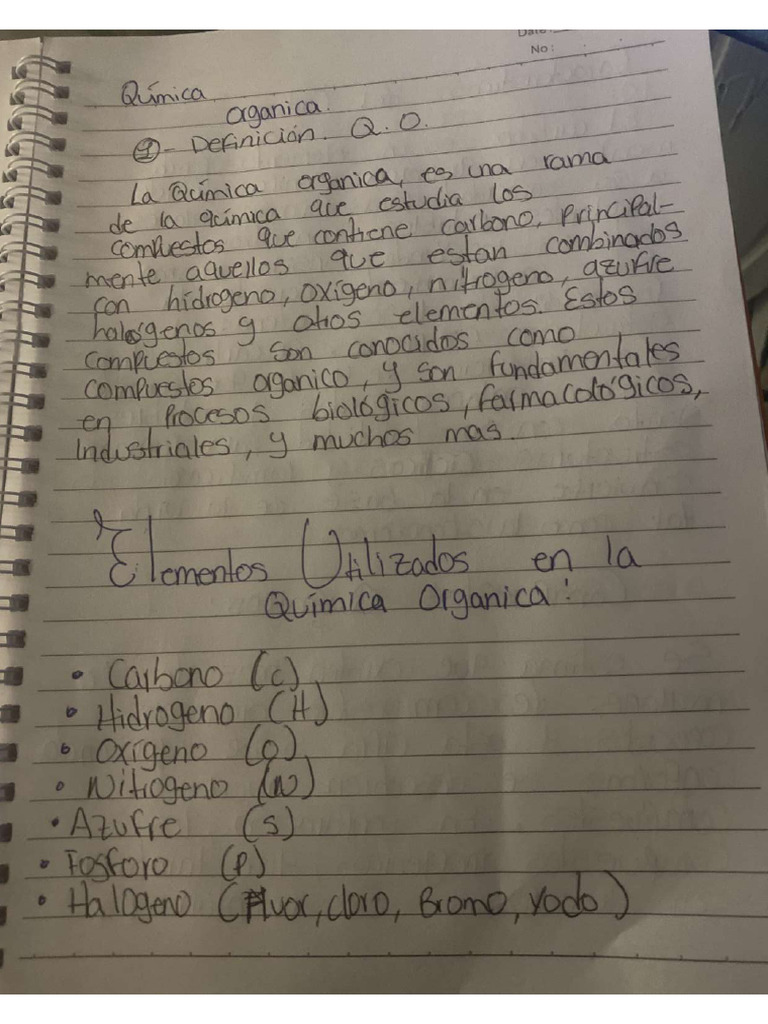 Date:
No:
Química
organica.
①- Definición. Q.O.
La Química organica, es una rama
de la química que estudia los
compuestos que contiene carbono, principal-
mente aquellos que estan combinados
con hidrogeno, oxígeno, nitrogeno, azufre
halogenos y otros elementos. Estos
compuestos son conocidos como
compuestos organico, y son fundamentales
en procesos biológicos, farmacológicos,
Industriales, y muchos mas.
Elementos Utilizados en la
Química Organica:
• Carbono (C)
• Hidrogeno (H)
• Oxígeno (O)
• Nitrogeno (N)
• Azufre (S)
• Fosforo (P)
• Halogeno (Fluor, cloro, Bromo, Yodo)